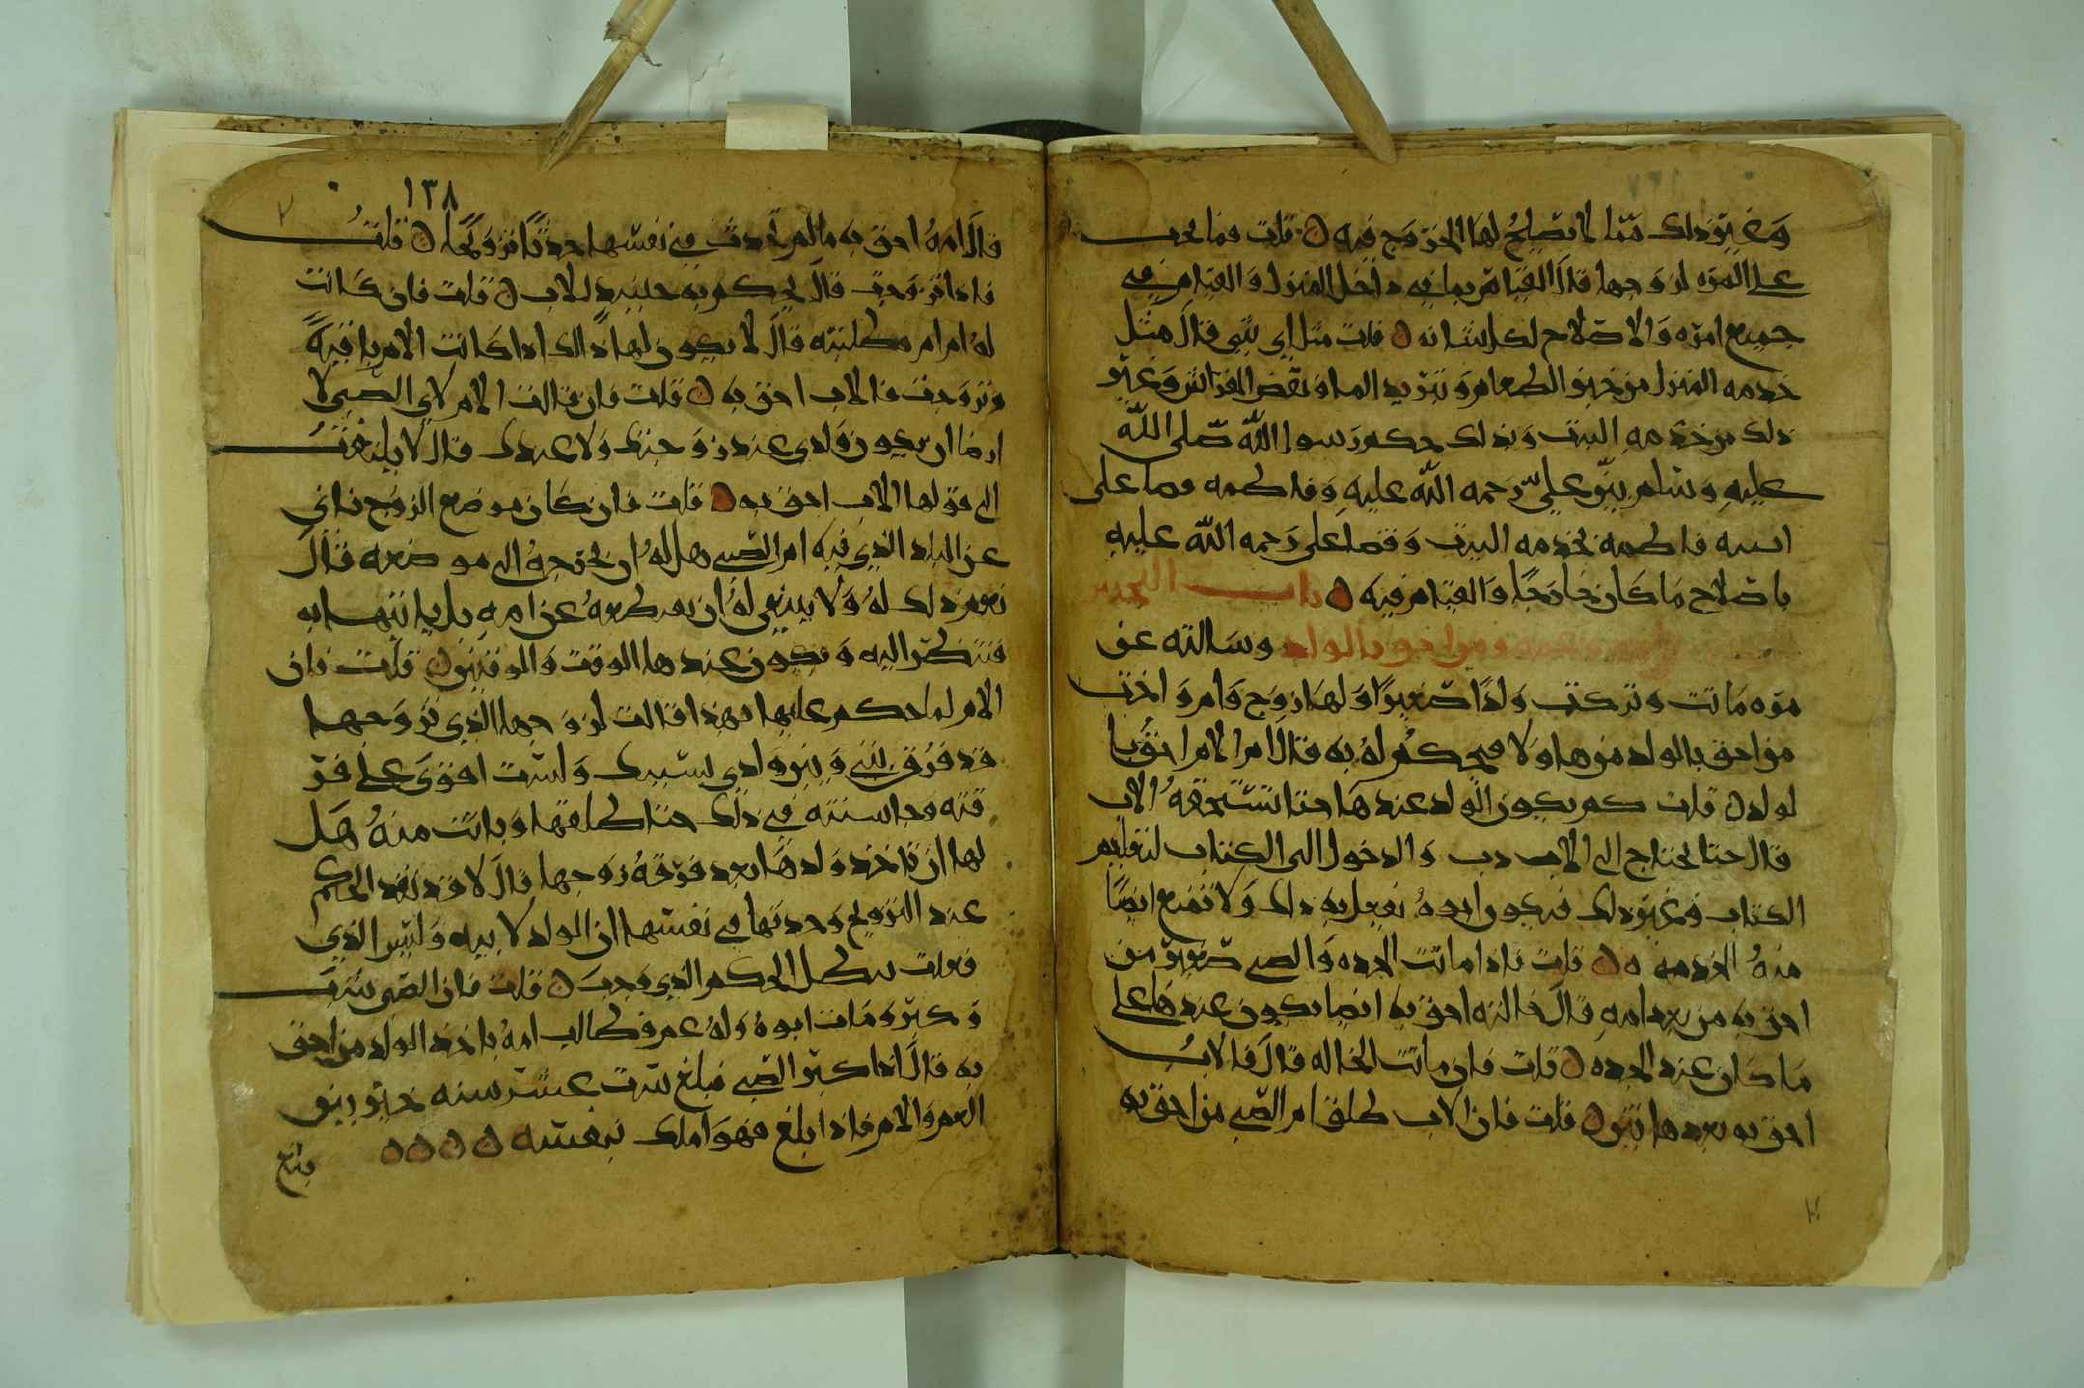 وغير ذلك مما لا يصلح لها الخروج فيه ه قلت فما يجب
على المره لزوجها قال القيام بما في داخل المنزل والقيام في
جميع امره والاصلاح لكل شانه ه قلت مثل اي شي قال مثل
خدمه المنزل من خبز الطعام وتبريد الما ونفض الفراش وغير
ذلك من خدمه البيت وبذلك حكم رسول الله صلى الله
عليه وسلم بين علي رحمه الله عليه وفاطمه فقضا على
ابنته فاطمه بخدمه البيت وقضا على علي رحمه الله عليه
باصلاح ما كان خارجا والقيام فيه ه باب
ومن احق بالولد وسالته عن
مره ماتت وتركت ولدا صغيرا ولها زوج وام واخت
من احق بالولد منهم ولا من يحكم له به قال ام الام احق با
لولد ه قلت كم يكون الولد عندها حتا تستحقه الاب
قال حتا يحتاج الى الادب والدخول الى الكتاب لتعليم
الكتاب وغير ذلك فيكون ابوه يفعل به ذلك ولا تمنع ايضا
منه الجده ه ه قلت فاذا ماتت الجده والصبي صغير من
احق به من بعد امه قال خالته احق به ايضا يكون عندها على
ما كان عند الجده ه قلت فان ماتت الخاله قال فالاب
احق به بعدهاتين ه قلت فان الاب طلق ام الصبي من احق به
١٣٨
قال امه احق به ما لم تحدث في نفسها حدثا تزويجا ه قلت
فاذا تزوجت قال يحكم به حينيذ للاب ه قلت فان كانت
له ام ام فطلبته قال لا يكون لها ذالك اذا كانت الام باقيه
وتزوجت فالاب احق به ه قلت فان قالت الام لابي الصبي لا
ارضا ان يكون ولدي عند زوجتك ولا عندك قال لا يلتفت
الى قولها الاب احق به ه قلت فان كان موضع الزوج نائي
عن البلد الذي فيه ام الصبي هل له ان يخرجه الى موضعه قال
نعم ذلك له ولا ينبغي له ان يقطعه عن امه بل ياتيها به
فتنظر اليه ويكون عندها الوقت والوقتين ه قلت فان
الام لما حكم عليها بهذا قالت لزوجها الذي تزوجها
قد فرق بيني وبين ولدي بسببك ولست اقوى على فر
قته وحاسنته في ذلك حتا طلقها وبانت منه هل
لها ان تاخذ ولدها بعد فرقه زوجها قال لا قد نفذ الحكم
عند التزويج وحدثها في نفسها ان الولد لابيه وليس الذي
فعلت يبطل الحكم الذي وجب ه قلت فان الصبي شب
وكبر ومات ابوه وله عم فطالب امه باخذ الولد من احق
به قال اذا كبر الصبي فبلغ ست عشر سنه خير بين
العم والام فاذا بلغ فهو املك بنفسه ه ه ه ه